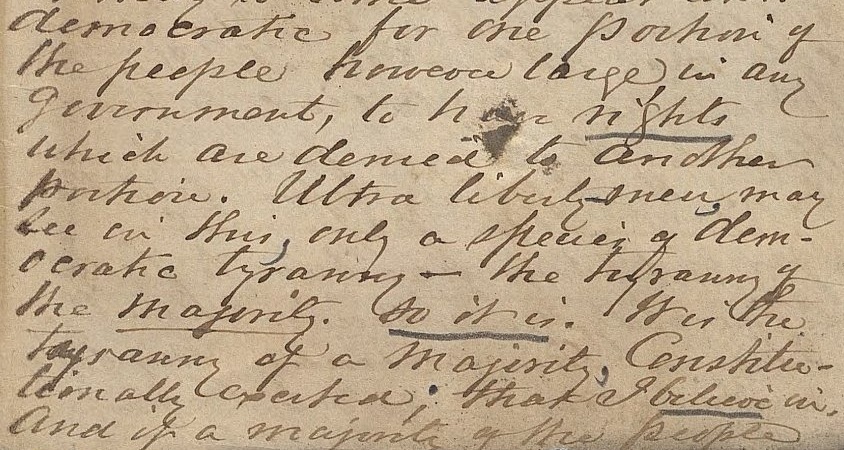 democratic for one portion of
the people however large, in any
government, to have rights
which are denied to another
portion. Ultra liberty-men, may
see in this, only a species of dem-
ocratic tyranny — the tyranny of
the majority. So it is. It is the
tyranny of a majority, Constitu-
tionally excited; that I believe in.
And if a majority of the people